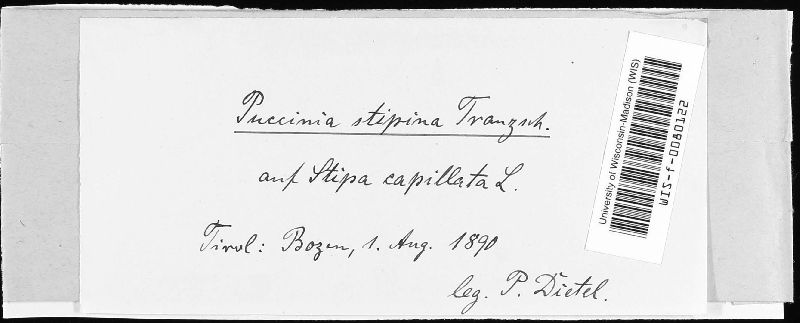 Puccinia stipina Tranzsch.
auf Stipa capillata L.
Tirol: Bozen, 1. Aug. 1890
leg. P. Dietel.
University of Wisconsin-Madison (WIS)
WIS-f-0080122